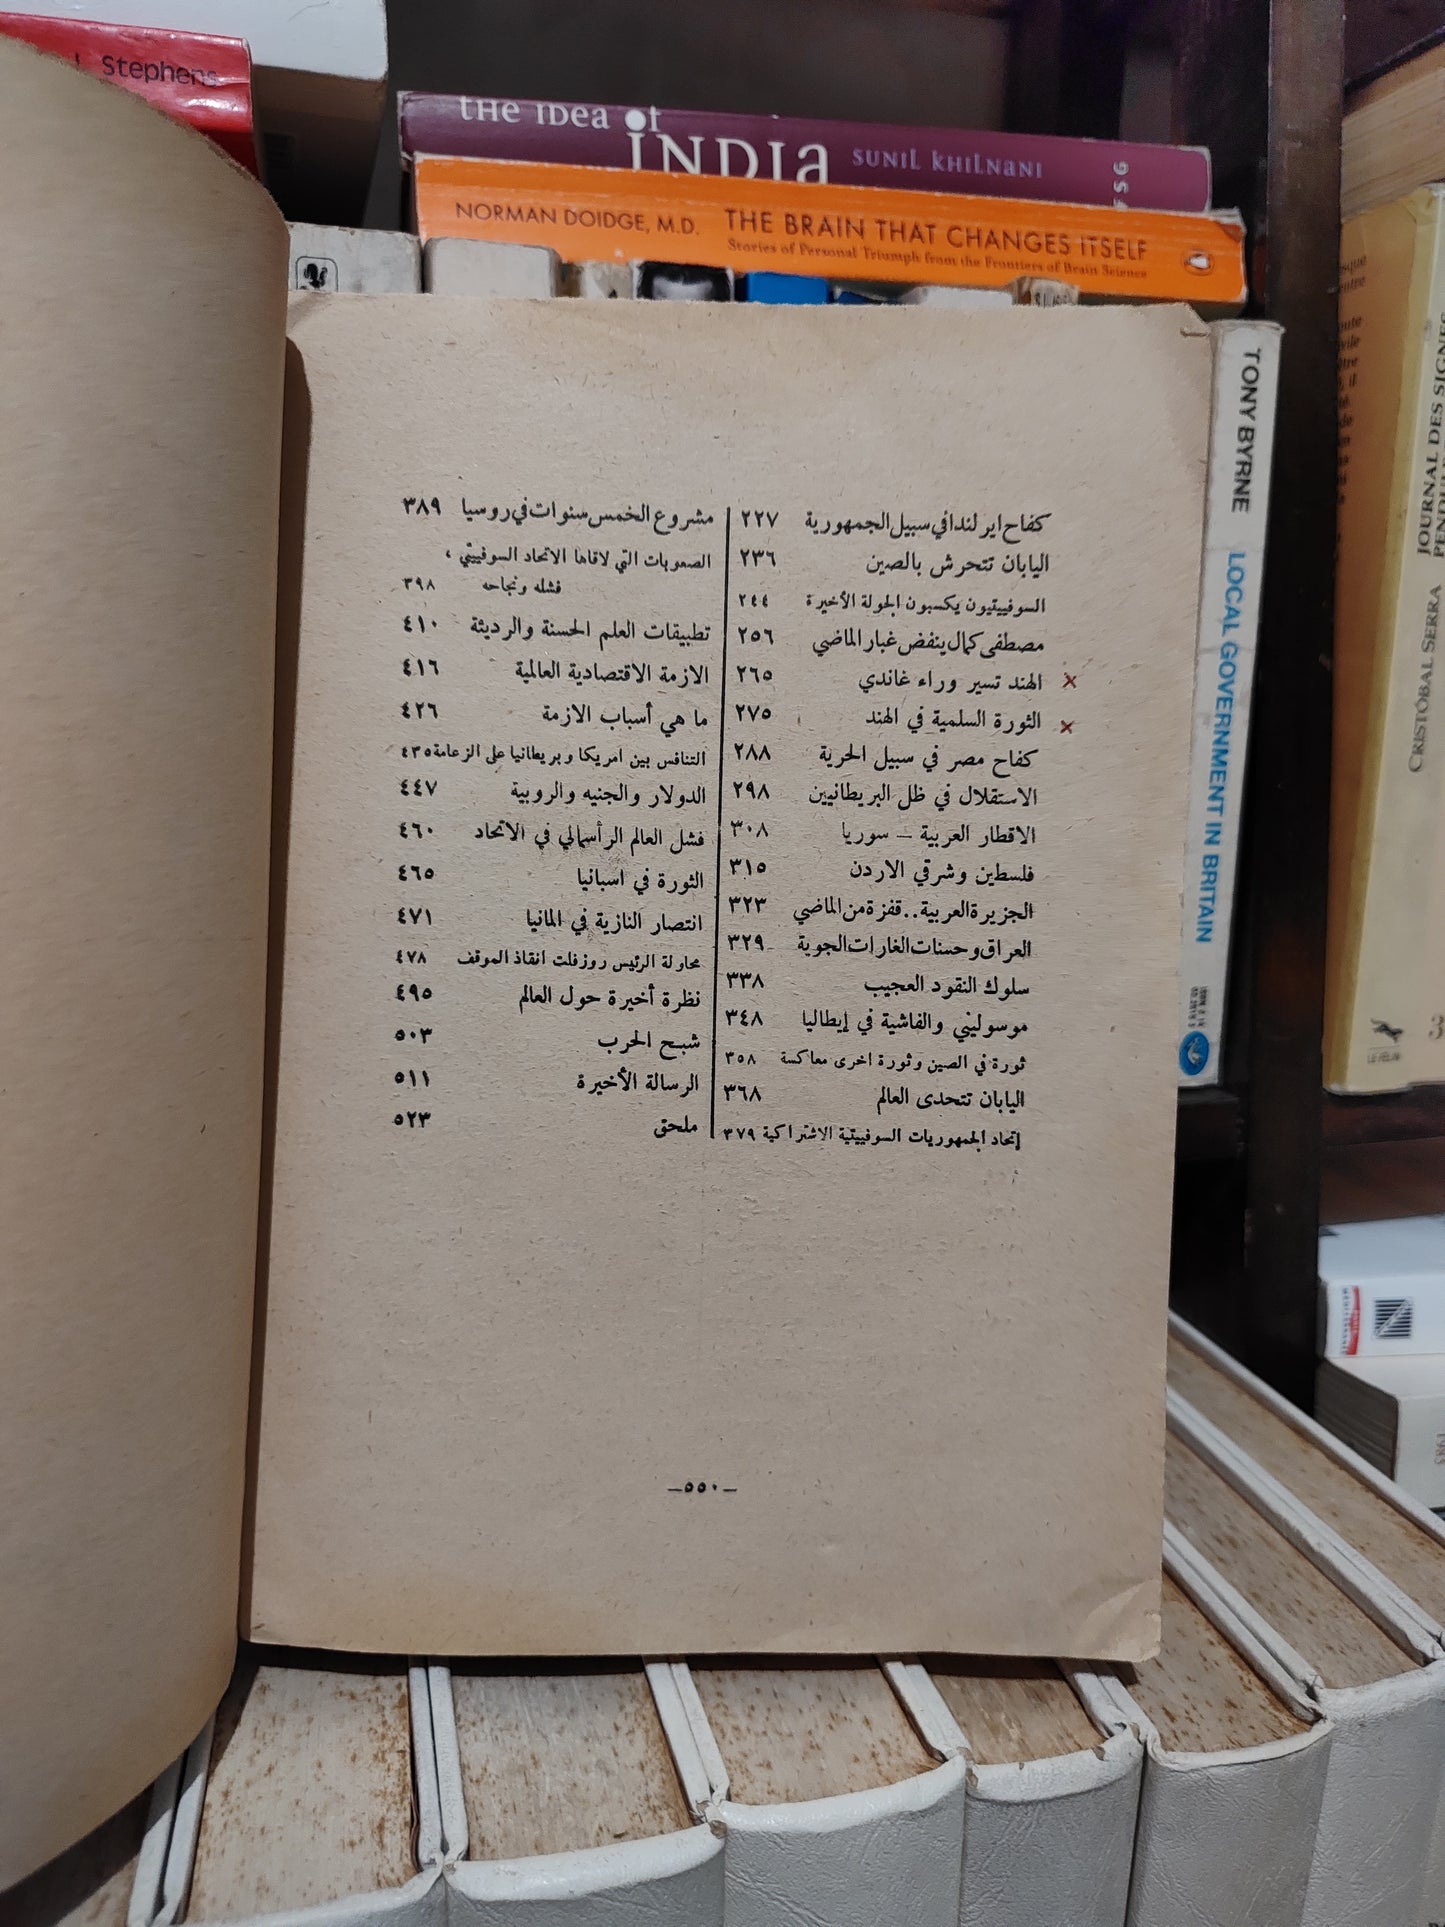 Stephens
the idea of
INDIA SUNIL KHILNANI
FSG
NORMAN DOIDGE, M.D. THE BRAIN THAT CHANGES ITSELF
Stories of Personal Triumph from the Frontiers of Brain Science
TONY BYRNE LOCAL GOVERNMENT IN BRITAIN
CRISTÓBAL SERRA JOURNAL DES SIGNES
كفاح ايرلندا في سبيل الجمهورية ٢٢٧
اليابان تتحرش بالصين ٢٣٦
السوفييتيون يكسبون الجولة الأخيرة ٢٤٤
مصطفى كمال ينفض غبار الماضي ٢٥٦
الهند تسير وراء غاندي ٢٦٥
الثورة السلمية في الهند ٢٧٥
كفاح مصر في سبيل الحرية ٢٨٨
الاستقلال في ظل البريطانيين ٢٩٨
الاقطار العربية — سوريا ٣٠٨
فلسطين وشرقي الاردن ٣١٥
الجزيرة العربية.. قفزة من الماضي ٣٢٣
العراق وحسنات الغارات الجوية ٣٢٩
سلوك النقود العجيب ٣٣٨
موسوليني والفاشية في إيطاليا ٣٤٨
ثورة في الصين وثورة اخرى معاكسة ٣٥٨
اليابان تتحدى العالم ٣٦٨
إتحاد الجمهوريات السوفييتية الاشتراكية ٣٧٩
مشروع الخمس سنوات في روسيا ٣٨٩
الصعوبات التي لاقاها الاتحاد السوفييتي ،
فشله ونجاحه ٣٩٨
تطبيقات العلم الحسنة والرديئة ٤١٠
الازمة الاقتصادية العالمية ٤١٦
ما هي أسباب الازمة ٤٢٦
التنافس بين امريكا وبريطانيا على الزعامة ٤٣٥
الدولار والجنيه والروبية ٤٤٧
فشل العالم الرأسمالي في الاتحاد ٤٦٠
الثورة في اسبانيا ٤٦٥
انتصار النازية في المانيا ٤٧١
محاولة الرئيس روزفلت انقاذ الموقف ٤٧٨
نظرة أخيرة حول العالم ٤٩٥
شبح الحرب ٥٠٣
الرسالة الأخيرة ٥١١
ملحق ٥٢٣
—٥٥٠—